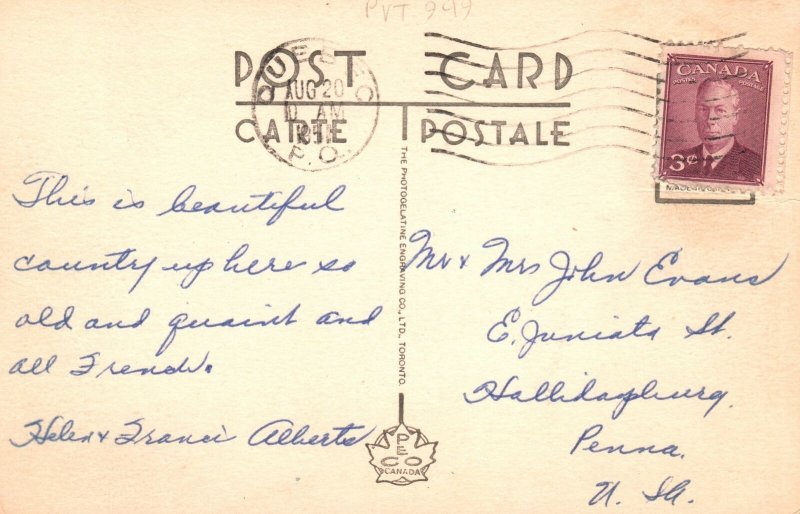 PVT 949
POST CARD
CARTE POSTALE
QUEBEC
AUG 20
AM
P.Q.
CANADA
POSTES POSTAGE
3¢
This is beautiful
country up here so
old and quaint and
all French.
Helen & Francis Alberts
THE PHOTOGELATINE ENGRAVING CO., LTD., TORONTO.
PECO
CANADA
Mr & Mrs John Evans
E. Juniata St.
Hollidaysburg,
Penna.